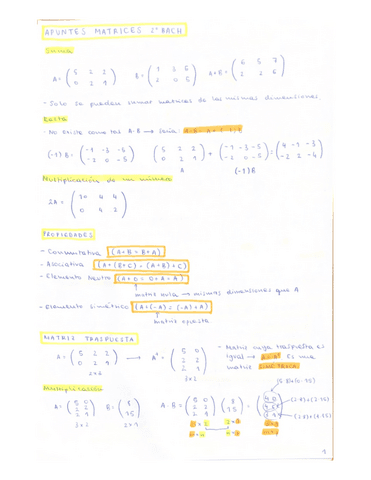 APUNTES MATRICES 2º BACH
Suma
A = ( 5 2 2 / 0 2 1 ) B = ( 1 3 5 / 2 0 5 ) A+B = ( 6 5 7 / 2 2 6 )
- Solo se pueden sumar matrices de las mismas dimensiones
Resta
- No existe como tal A-B → Sería:
(-1)B = ( -1 -3 -5 / -2 0 -5 ) ( 5 2 2 / 0 2 1 ) + ( -1 -3 -5 / -2 0 -5 ) = ( 4 -1 -3 / -2 2 -4 )
A (-1)B
Multiplicación de un número
2A = ( 10 4 4 / 0 4 2 )
PROPIEDADES
- Conmutativa (A+B = B+A)
- Asociativa (A+(B+C) = (A+B)+C)
- Elemento Neutro (A+0 = 0+A = A)
matriz nula → mismas dimensiones que A
- Elemento simétrico (A+(-A) = (-A)+A)
matriz opuesta
MATRIZ TRASPUESTA
A = ( 5 2 2 / 0 2 1 ) → Aᵗ = ( 5 0 / 2 2 / 2 1 )
2x3 3x2
- Matriz cuya traspuesta es
igual → A = Aᵗ Es una
matriz simétrica
Multiplicación
A = ( 5 0 / 2 2 / 2 1 ) B = ( 8 / 15 ) A·B = ( 5 0 / 2 2 / 2 1 ) ( 8 / 15 ) =
3x2 2x1
1